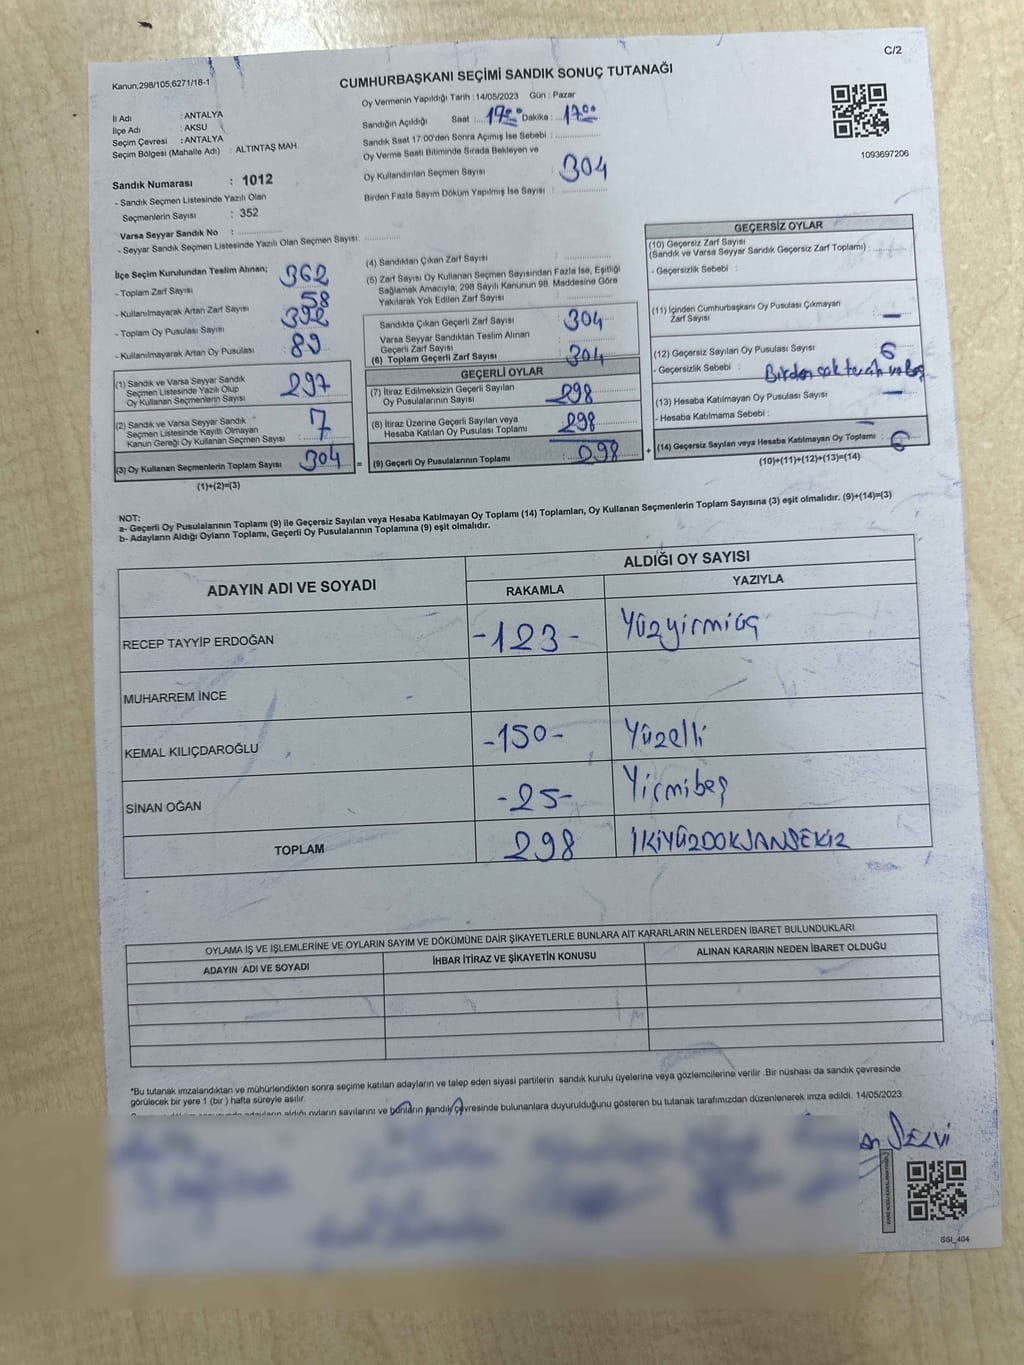 C/2
Kanun;298/105;6271/18-1
CUMHURBAŞKANI SEÇİMİ SANDIK SONUÇ TUTANAĞI
Oy Vermenin Yapıldığı Tarih : 14/05/2023 Gün : Pazar
İl Adı : ANTALYA
İlçe Adı : AKSU
Seçim Çevresi : ANTALYA
Seçim Bölgesi (Mahalle Adı) : ALTINTAŞ MAH.
Sandık Numarası : 1012
- Sandık Seçmen Listesinde Yazılı Olan
Seçmenlerin Sayısı : 352
Varsa Seyyar Sandık No :
- Seyyar Sandık Seçmen Listesinde Yazılı Olan Seçmen Sayısı:
Sandığın Açıldığı Saat : 17:00 Dakika : 17:00
Sandık Saat 17:00'den Sonra Açımış İse Sebebi :
Oy Verme Saati Bitiminde Sırada Bekleyen ve
Oy Kullandırılan Seçmen Sayısı : 304
Birden Fazla Sayım Döküm Yapılmış İse Sayısı :
1093697206
İlçe Seçim Kurulundan Teslim Alınan;
- Toplam Zarf Sayısı : 362
- Kullanılmayarak Artan Zarf Sayısı : 58
- Toplam Oy Pusulası Sayısı : 392
- Kullanılmayarak Artan Oy Pusulası : 89
(1) Sandık ve Varsa Seyyar Sandık
Seçmen Listesinde Yazılı Olup
Oy Kullanan Seçmenlerin Sayısı : 297
(2) Sandık ve Varsa Seyyar Sandık
Seçmen Listesinde Kayıtlı Olmayan
Kanun Gereği Oy Kullanan Seçmen Sayısı : 7
(3) Oy Kullanan Seçmenlerin Toplam Sayısı 304
(1)+(2)=(3)
(4) Sandıktan Çıkan Zarf Sayısı :
(5) Zarf Sayısı Oy Kullanan Seçmen Sayısından Fazla İse, Eşitliği
Sağlamak Amacıyla; 298 Sayılı Kanunun 98. Maddesine Göre
Yakılarak Yok Edilen Zarf Sayısı :
Sandıkta Çıkan Geçerli Zarf Sayısı : 304
Varsa Seyyar Sandıktan Teslim Alınan
Geçerli Zarf Sayısı :
(6) Toplam Geçerli Zarf Sayısı : 304
GEÇERLİ OYLAR
(7) İtiraz Edilmeksizin Geçerli Sayılan
Oy Pusulalarının Sayısı : 298
(8) İtiraz Üzerine Geçerli Sayılan veya
Hesaba Katılan Oy Pusulası Toplamı : 298
= (9) Geçerli Oy Pusulalarının Toplamı : 298
GEÇERSİZ OYLAR
(10) Geçersiz Zarf Sayısı
(Sandık ve Varsa Seyyar Sandık Geçersiz Zarf Toplamı) :
- Geçersizlik Sebebi :
(11) İçinden Cumhurbaşkanı Oy Pusulası Çıkmayan
Zarf Sayısı : —
(12) Geçersiz Sayılan Oy Pusulası Sayısı : 6
- Geçersizlik Sebebi : Birden çok tercih ve boş
(13) Hesaba Katılmayan Oy Pusulası Sayısı : —
- Hesaba Katılmama Sebebi : —
+ (14) Geçersiz Sayılan veya Hesaba Katılmayan Oy Toplamı : 6
(10)+(11)+(12)+(13)=(14)
NOT:
a- Geçerli Oy Pusulalarının Toplamı (9) ile Geçersiz Sayılan veya Hesaba Katılmayan Oy Toplamı (14) Toplamları, Oy Kullanan Seçmenlerin Toplam Sayısına (3) eşit olmalıdır. (9)+(14)=(3)
b- Adayların Aldığı Oyların Toplamı, Geçerli Oy Pusulalarının Toplamına (9) eşit olmalıdır.
ADAYIN ADI VE SOYADI
ALDIĞI OY SAYISI
RAKAMLA YAZIYLA
RECEP TAYYİP ERDOĞAN -123- Yüzyirmiüç
MUHARREM İNCE
KEMAL KILIÇDAROĞLU -150- Yüzelli
SİNAN OĞAN -25- Yirmibeş
TOPLAM 298 İKİYÜZDOKSANSEKİZ
OYLAMA İŞ VE İŞLEMLERİNE VE OYLARIN SAYIM VE DÖKÜMÜNE DAİR ŞİKAYETLERLE BUNLARA AİT KARARLARIN NELERDEN İBARET BULUNDUKLARI
ADAYIN ADI VE SOYADI İHBAR İTİRAZ VE ŞİKAYETİN KONUSU ALINAN KARARIN NEDEN İBARET OLDUĞU
*Bu tutanak imzalandıktan ve mühürlendikten sonra seçime katılan adayların ve talep eden siyasi partilerin sandık kurulu üyelerine veya gözlemcilerine verilir .Bir nüshası da sandık çevresinde
görülecek bir yere 1 (bir ) hafta süreyle asılır.
adayların aldığı oyların sayılarını ve bunların sandık çevresinde bulunanlara duyurulduğunu gösteren bu tutanak tarafımızdan düzenlenerek imza edildi. 14/05/2023
SELVİ
SSI_404